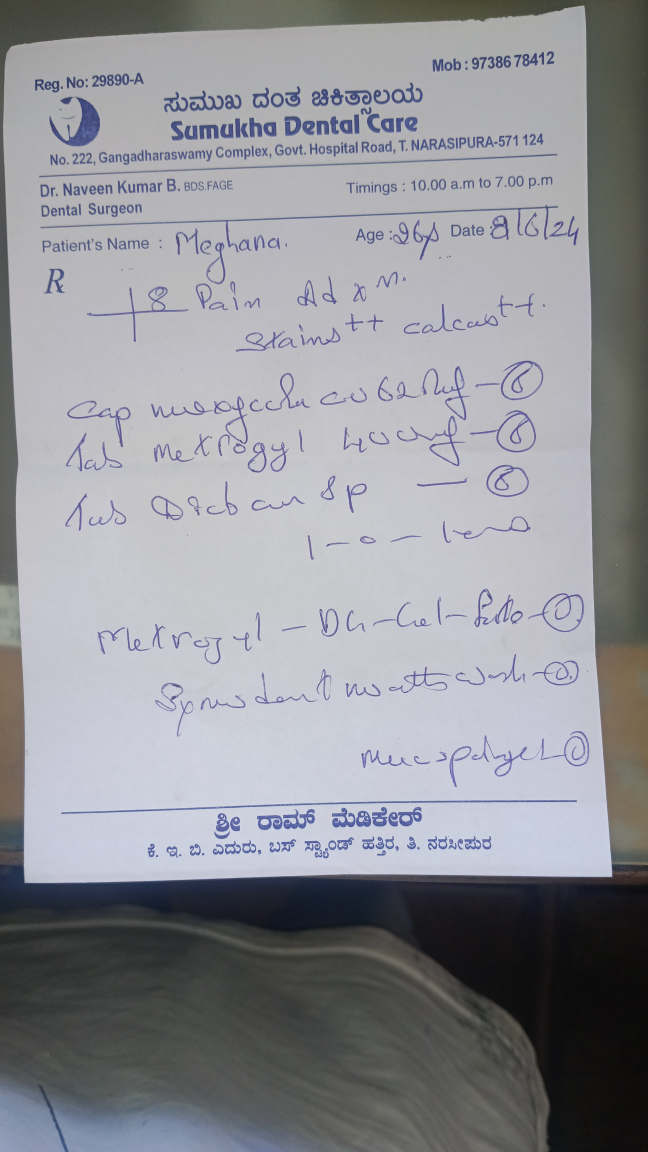 Reg. No: 29890-A
Mob : 97386 78412
ಸುಮುಖ ದಂತ ಚಿಕಿತ್ಸಾಲಯ
Sumukha Dental Care
No. 222, Gangadharaswamy Complex, Govt. Hospital Road, T. NARASIPURA-571 124
Dr. Naveen Kumar B. BDS.FAGE
Timings : 10.00 a.m to 7.00 p.m
Dental Surgeon
Patient's Name : Meghana. Age : 26y Date : 8/6/24
Rx
8 Pain
Stains ++
Cap 625mg - 6
Tab Metrogyl 400mg - 6
Tab SP - 6
1-0-1
Metrogyl - DG - Gel -
ಶ್ರೀ ರಾಮ್ ಮೆಡಿಕೇರ್
ಕೆ. ಇ. ಬಿ. ಎದುರು, ಬಸ್ ಸ್ಟ್ಯಾಂಡ್ ಹತ್ತಿರ, ತಿ. ನರಸೀಪುರ